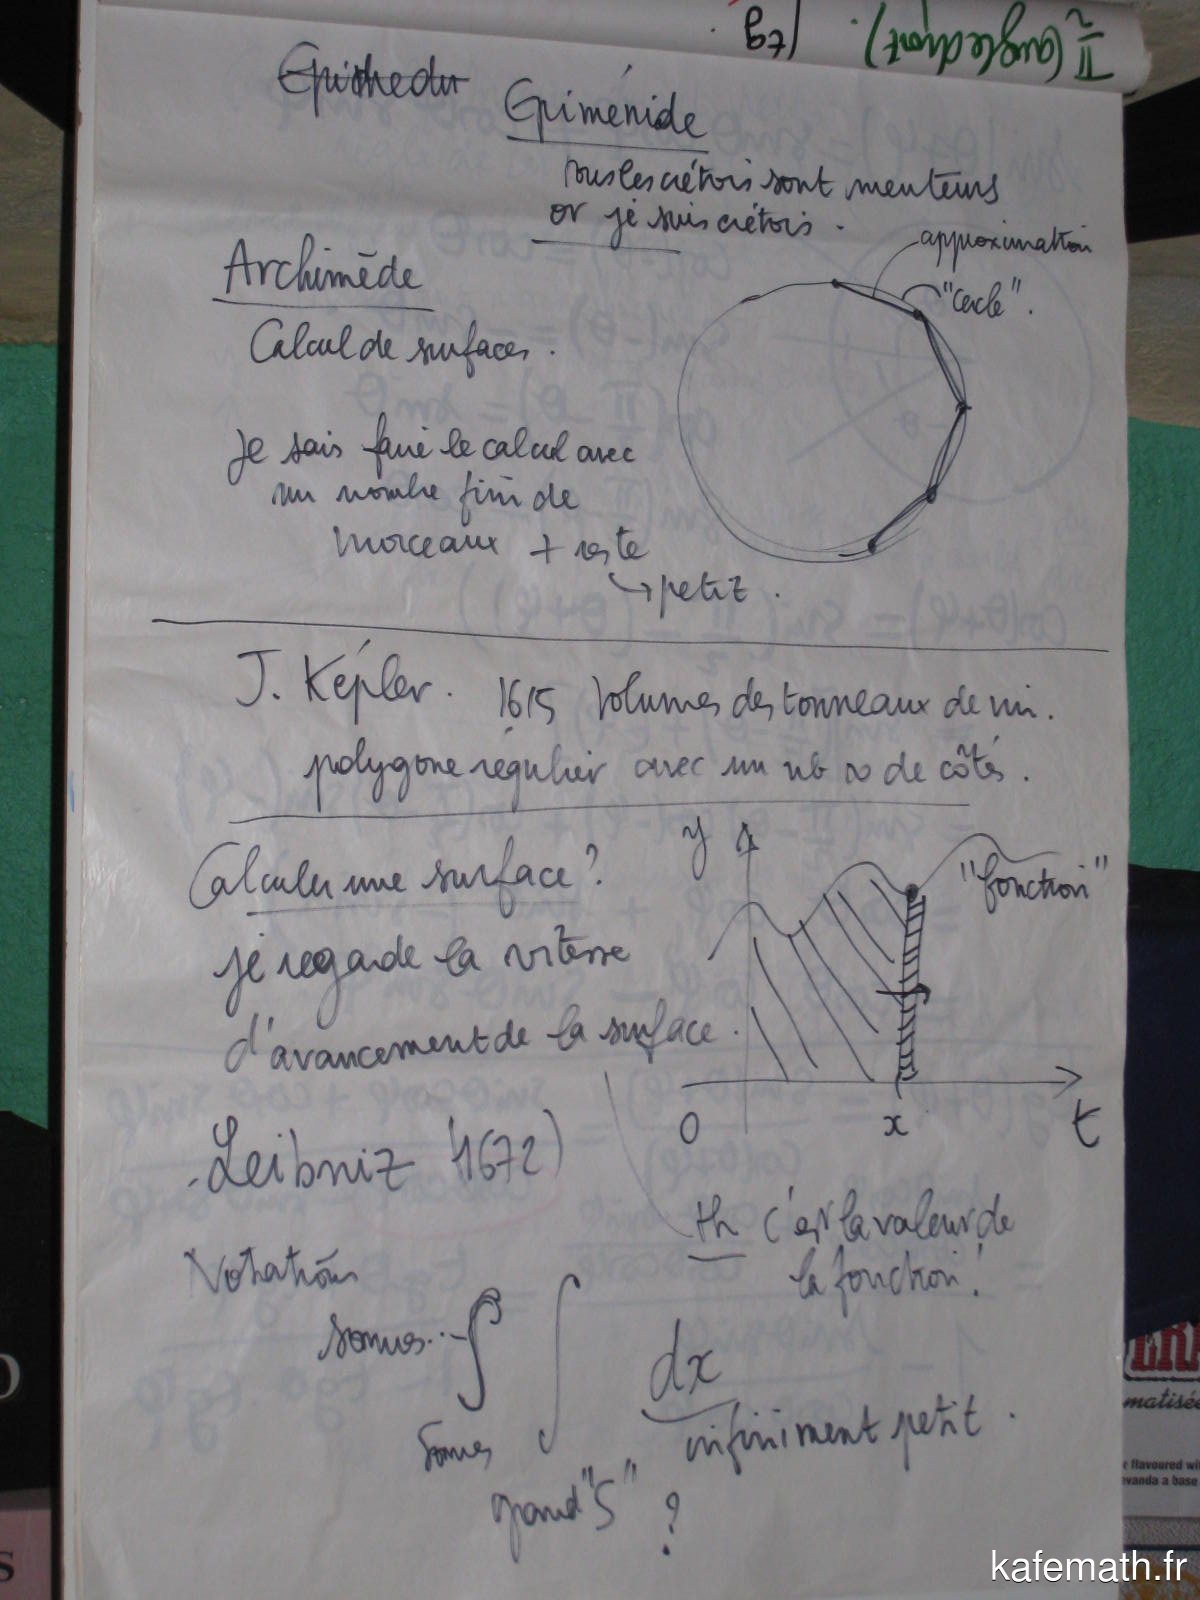 π/2 (angle droit). (tg.
Epimedu
Epiménide
tous les crétois sont menteurs
or je suis crétois.
approximation
"cercle".
Archimède
Calcul de surfaces.
je sais faire le calcul avec
un nombre fini de
morceaux + reste
↳ petit.
J. Képler. 1615 Volumes des tonneaux de vin.
polygone régulier avec un nb ∞ de côtés.
Calculer une surface?
y
"fonction"
je regarde la vitesse
d'avancement de la surface.
0 x t
Leibniz 1672)
th c'est la valeur de
la fonction!
Notations
∫ ∫ dx
infiniment petit.
grand "S" ?
ERA
matisée
flavoured wi
vanda a base
kafemath.fr